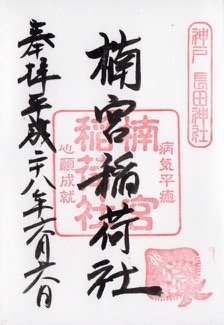 神戸 長田神社
楠宮稲荷社
病気平癒
楠宮
稲荷社
心願成就
奉拝 平成二十八年六月六日